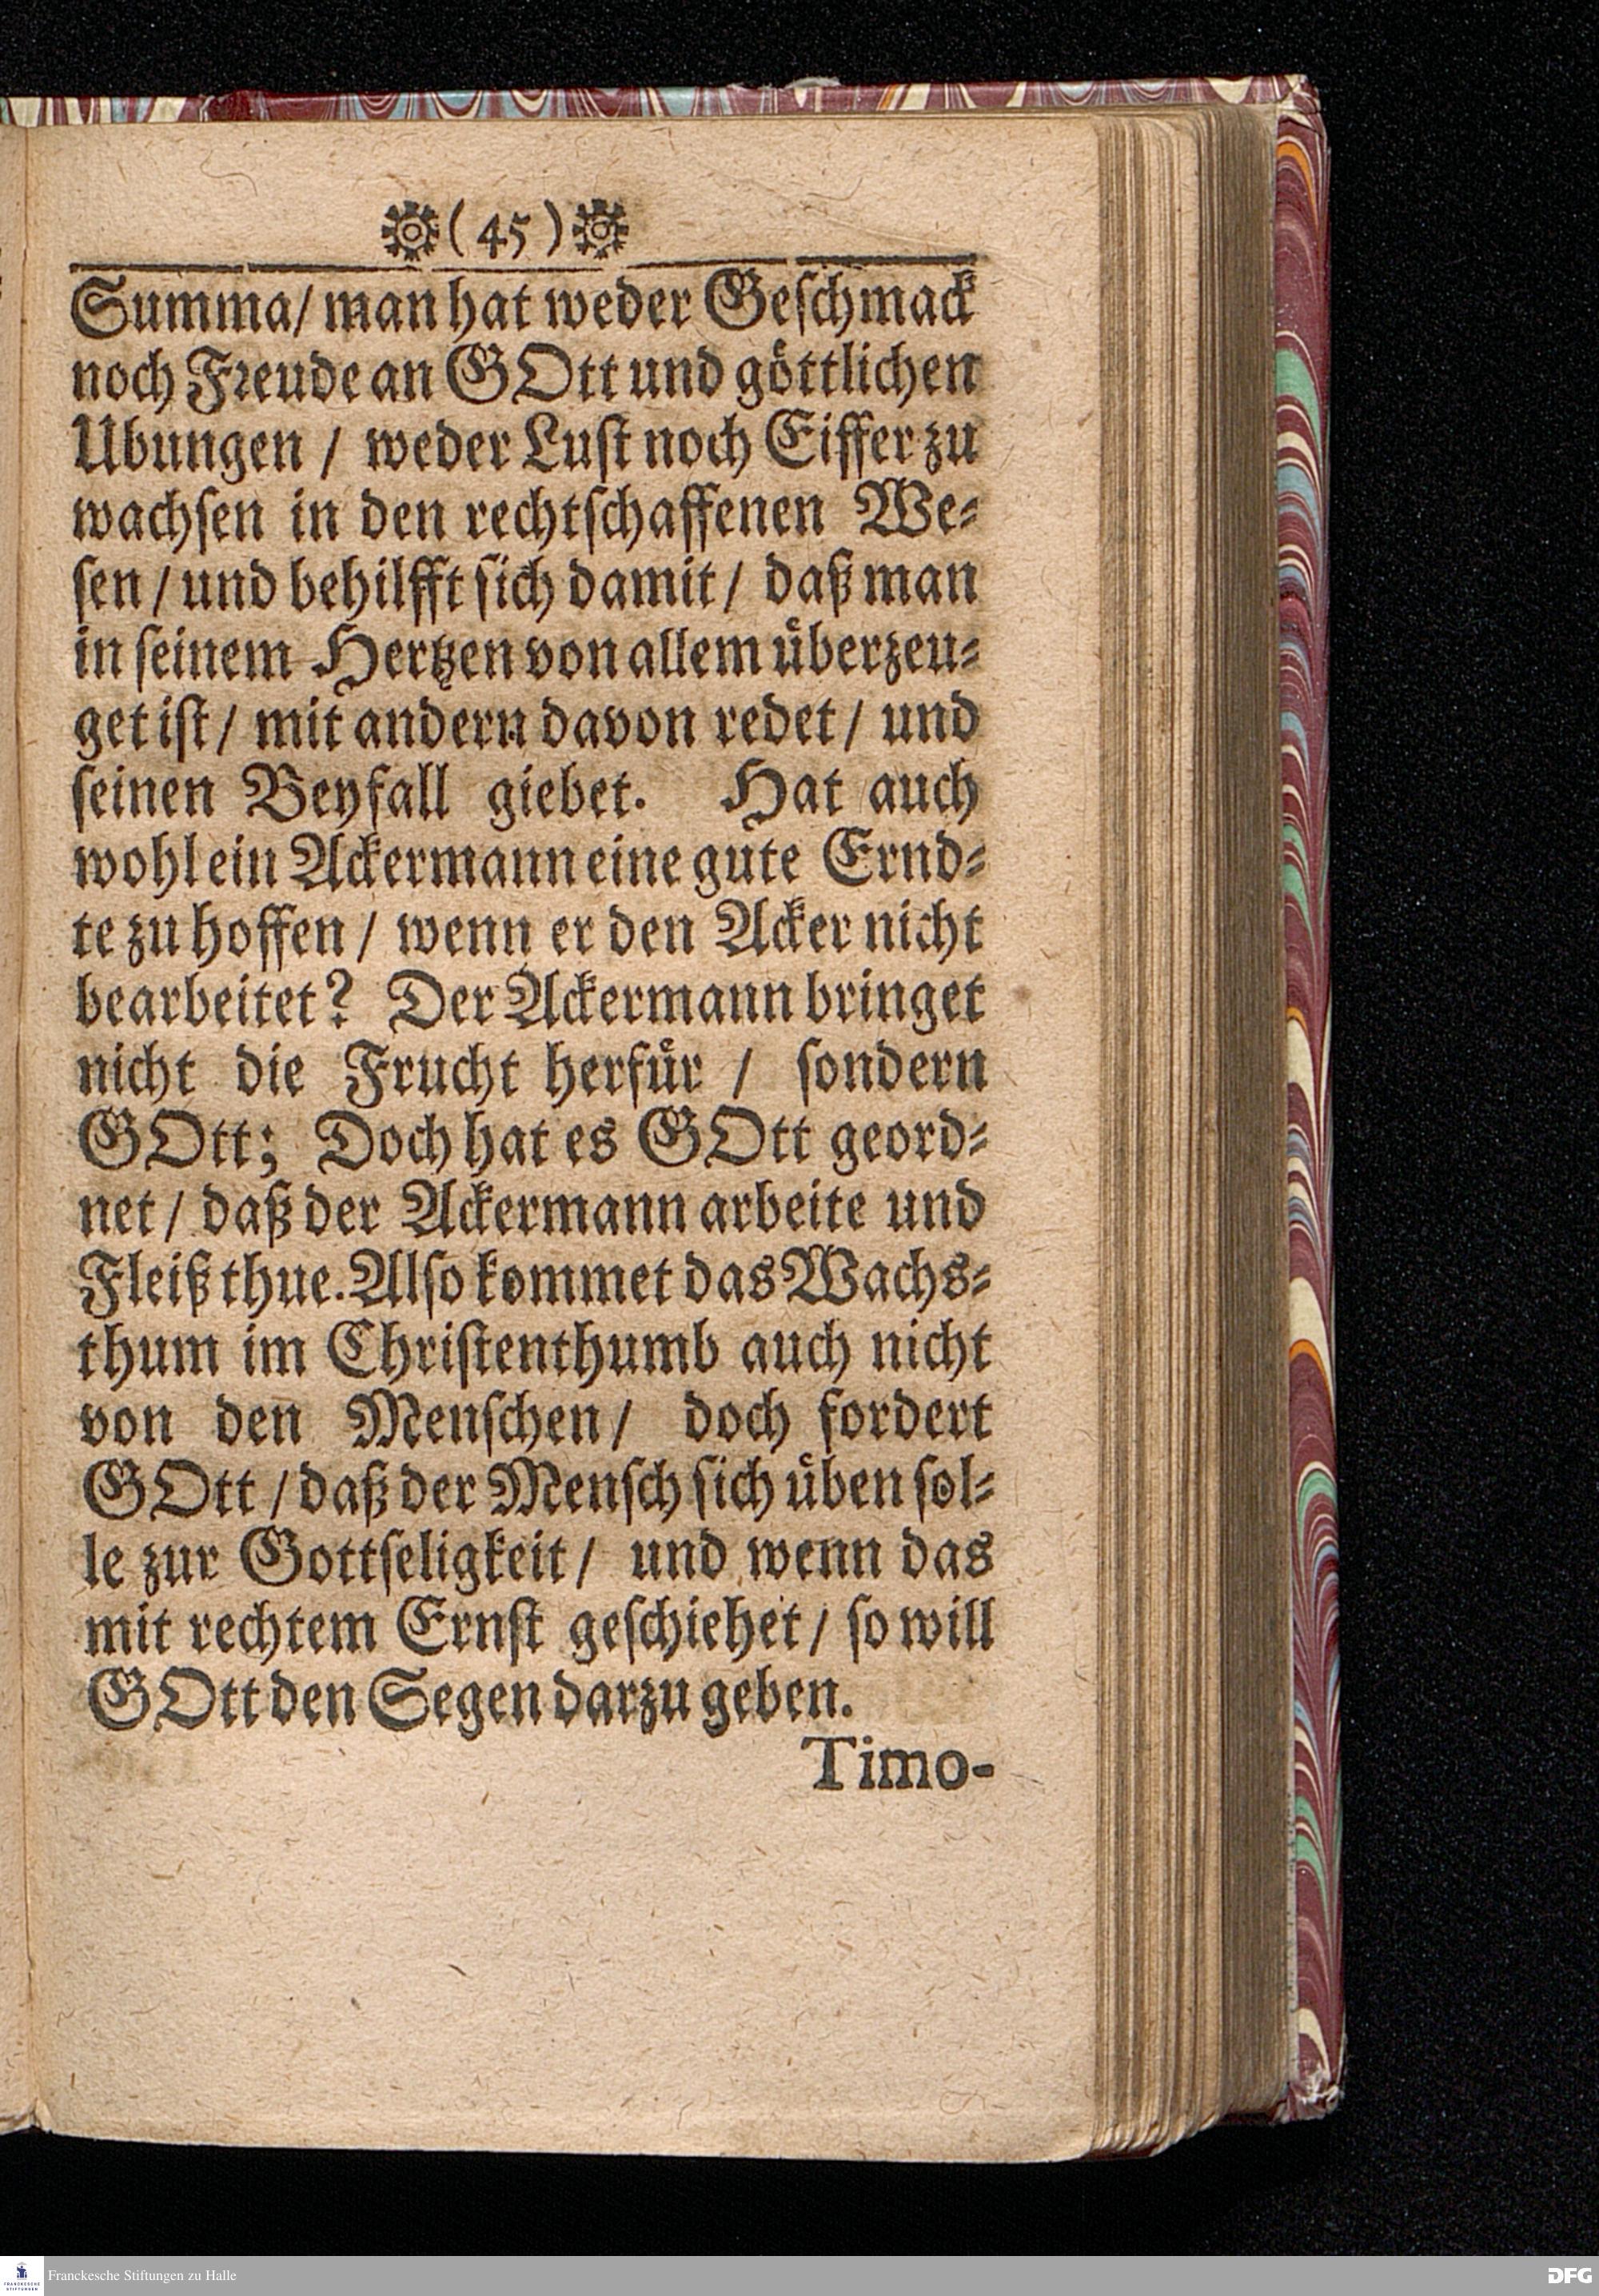 ( 45 )
Summa/ man hat weder Geſchmack
noch Freude an GOtt und goͤttlichen
Ubungen / weder Luſt noch Eiffer zu
wachſen in den rechtſchaffenen We⸗
ſen / und behilfft ſich damit / daß man
in ſeinem Hertzen von allem uͤberzeu⸗
get iſt / mit andern davon redet / und
ſeinen Beyfall giebet. Hat auch
wohl ein Ackermann eine gute Ernd⸗
te zu hoffen / wenn er den Acker nicht
bearbeitet? Der Ackermann bringet
nicht die Frucht herfuͤr / ſondern
GOtt; Doch hat es GOtt geord⸗
net / daß der Ackermann arbeite und
Fleiß thue. Alſo kommet das Wachs⸗
thum im Chriſtenthumb auch nicht
von den Menſchen / doch fordert
GOtt / daß der Menſch ſich uͤben ſol⸗
le zur Gottſeligkeit / und wenn das
mit rechtem Ernſt geſchiehet / ſo will
GOtt den Segen darzu geben.
Timo-
FRANCKESCHE
STIFTUNGEN
Franckesche Stiftungen zu Halle
DFG